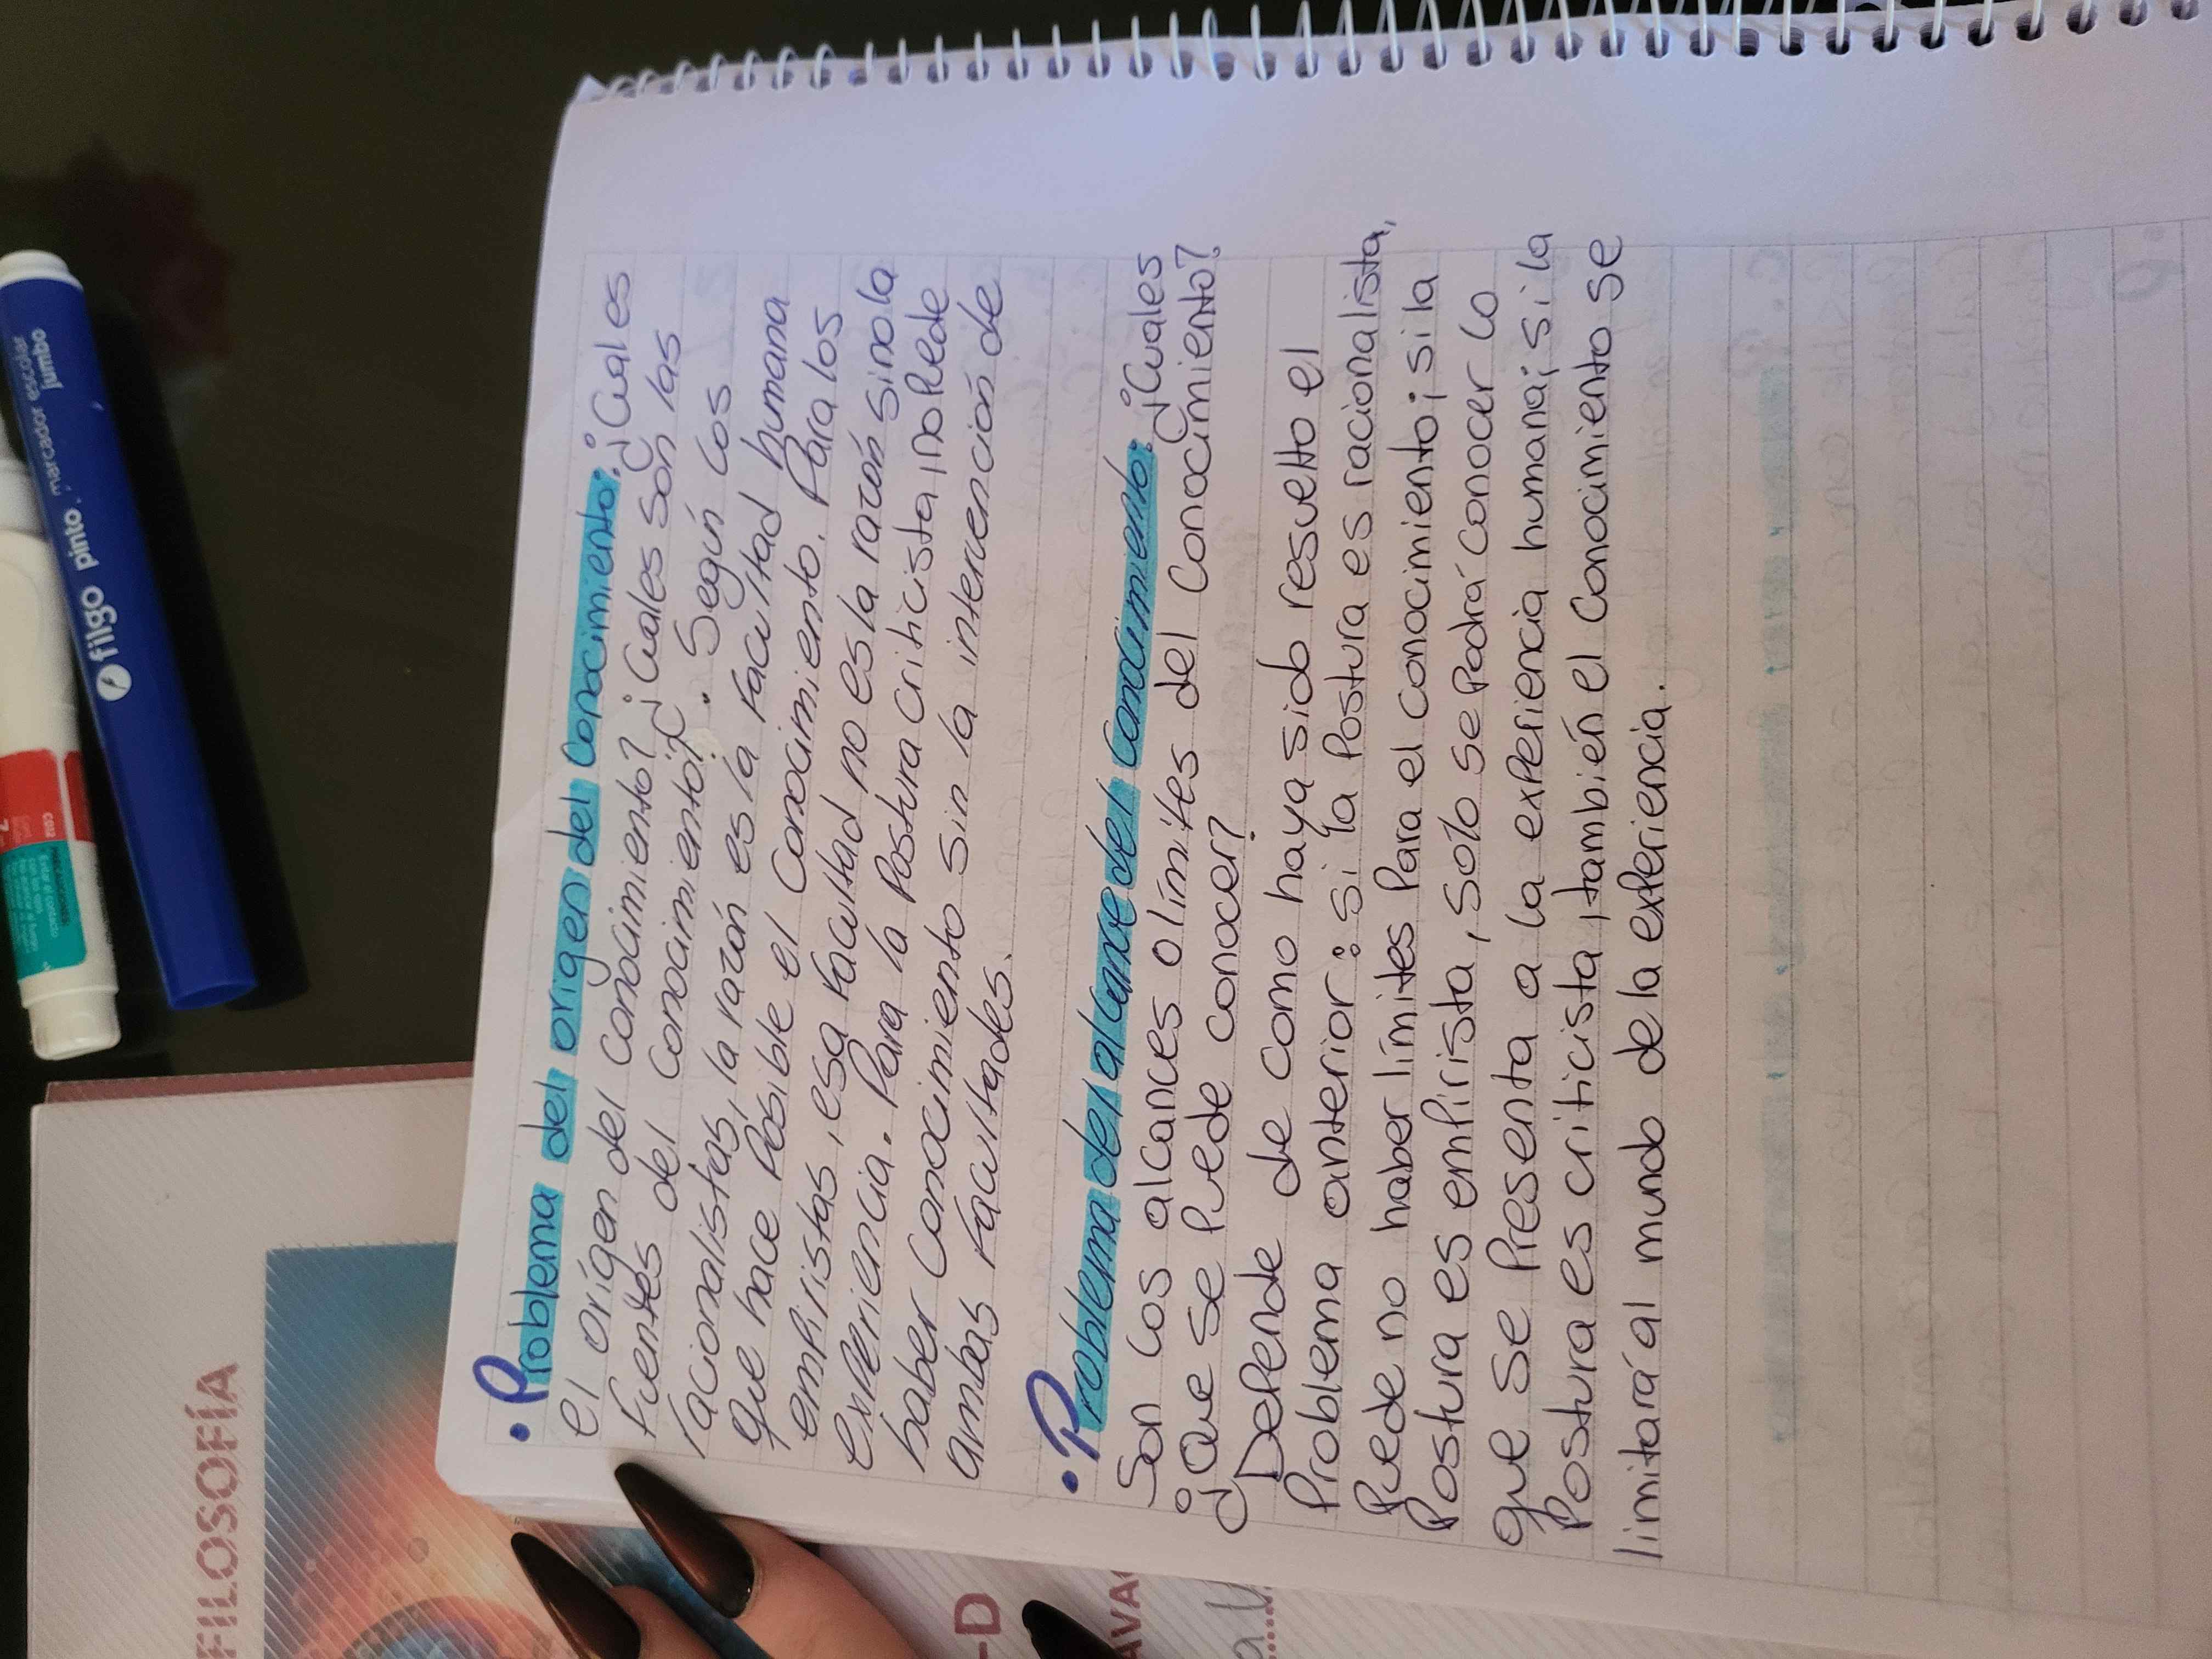 • Problema del origen del conocimiento: ¿Cuales
el orígen del conocimiento? ¿Cuales son las
fuentes del conocimiento?. Según los
racionalistas, la razón es la facultad humana
que hace posible el conocimiento. Para los
empiristas, esa facultad no es la razón sino la
experiencia. Para la postura criticista, no puede
haber conocimiento sin la intervención de
ambas facultades.
• Problema del alcance del conocimiento: ¿Cuales
son los alcances o límites del conocimiento?
¿Que se puede conocer?
Depende de como haya sido resuelto el
problema anterior: si la postura es racionalista,
puede no haber límites para el conocimiento; si la
postura es empirista, solo se podrá conocer lo
que se presenta a la experiencia humana; si la
postura es criticista, también el conocimiento se
limitará al mundo de la experiencia.
filgo pinto. marcador escolar
jumbo
FILOSOFÍA
-D